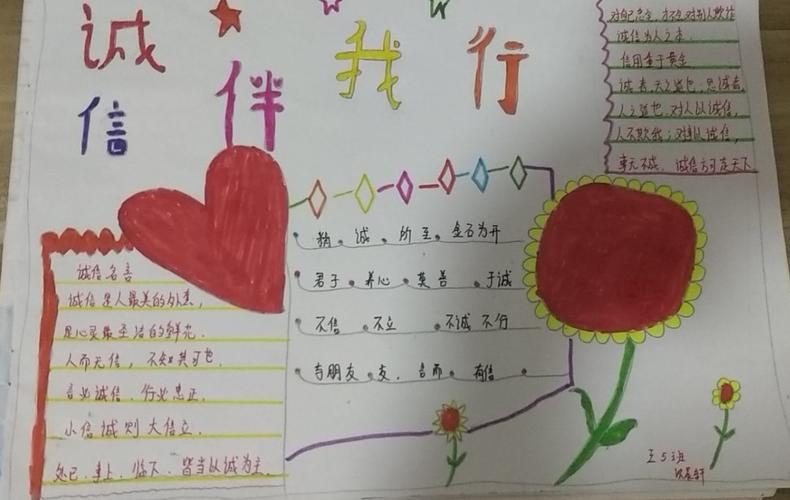 诚信伴我行
对自己忠实，才不会对别人欺诈
诚信为人之本
信用重于黄金
诚者，天之道也，思诚者，
人之道也，对人以诚信，
人不欺我；对事以诚信，
事无不成，诚信方可走天下
精诚所至，金石为开
君子养心莫善于诚
不信不立 不诚不行
与朋友交，言而有信
诚信名言
诚信是人最美的外表，
是心灵最圣洁的鲜花。
人而无信，不知其可也。
言必诚信，行必忠正。
小信诚则大信立。
处己、事上、临下、皆当以诚为主。
5班